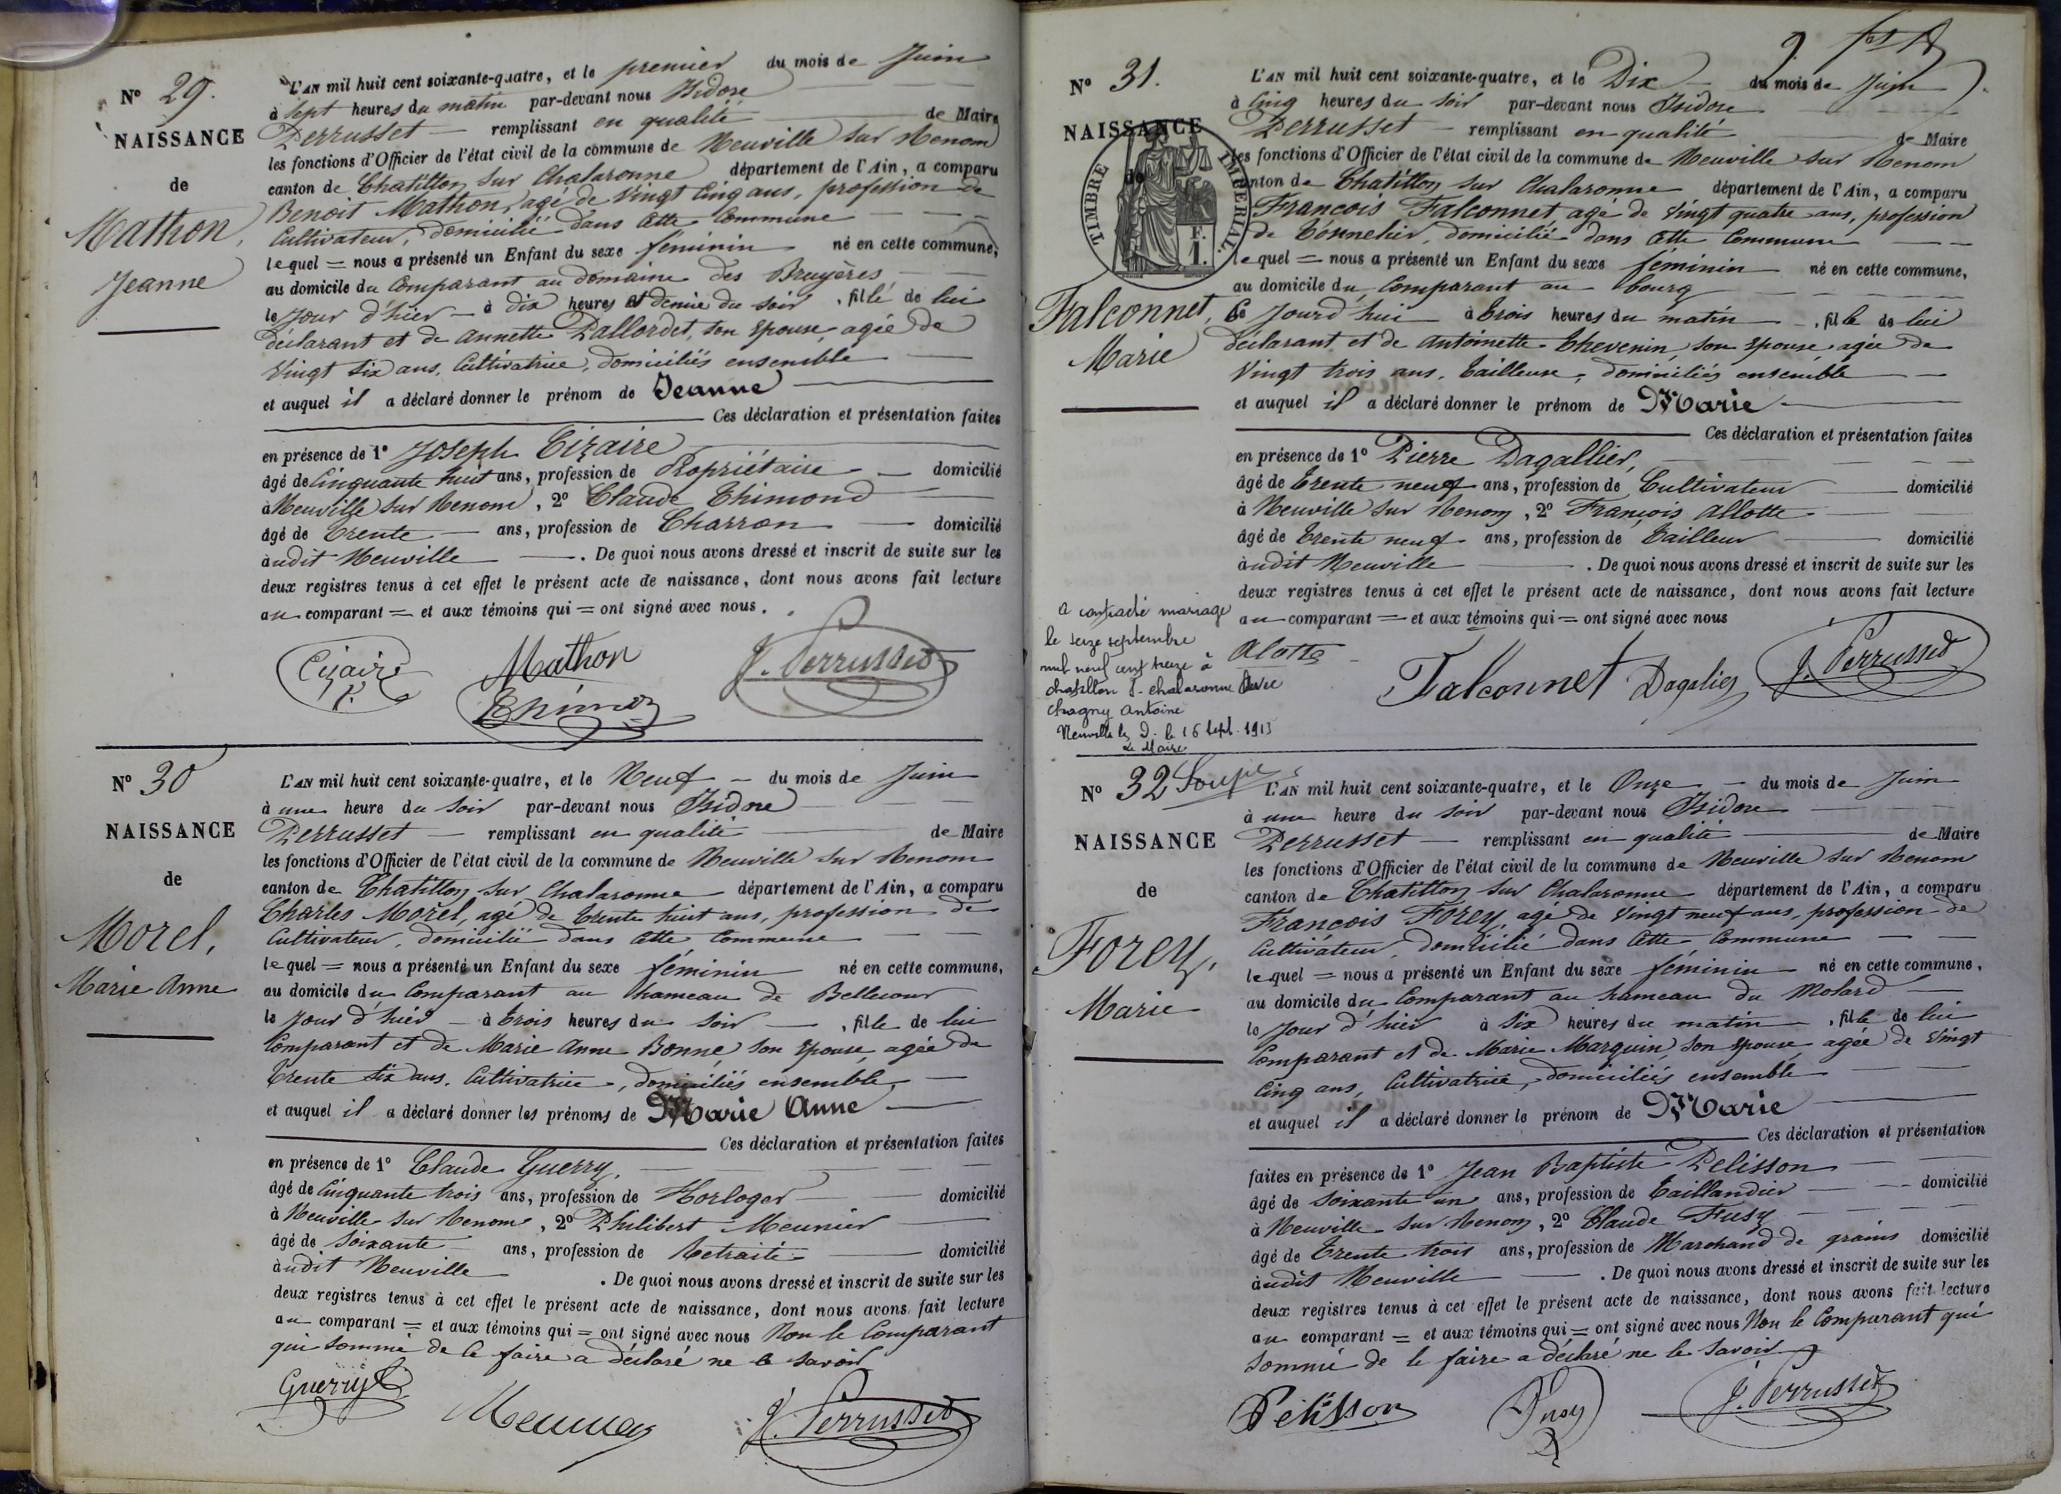 N° 29.
NAISSANCE
de
Mathon,
Jeanne
L'AN mil huit cent soixante-quatre, et le premier du mois de Juin
à Sept heures du matin par-devant nous Isidore
Perrusset remplissant en qualité de Maire
les fonctions d'Officier de l'état civil de la commune de Neuville sur Renom
canton de Chatillon sur Chalaronne département de l'Ain, a comparu
Benoit Mathon, agé de Vingt Cinq ans, profession de
Cultivateur, domicilié dans Cette Commune
lequel = nous a présenté un Enfant du sexe féminin né en cette commune,
au domicile du Comparant au domaine des Bruyères
le Jour d'hier à dix heures et demie du soir, fille de lui
déclarant et de Annette Pallordet, son Epouse, agée de
Vingt six ans, Cultivatrice, domiciliés ensemble
et auquel il a déclaré donner le prénom de Jeanne
Ces déclaration et présentation faites
en présence de 1° Joseph Cizaire
âgé de Cinquante huit ans, profession de Propriétaire domicilié
à Neuville sur Renom, 2° Claude Thimond
âgé de Trente ans, profession de Charron domicilié
à udit Neuville. De quoi nous avons dressé et inscrit de suite sur les
deux registres tenus à cet effet le présent acte de naissance, dont nous avons fait lecture
au comparant = et aux témoins qui = ont signé avec nous.
Cizaire Mathon J. Perrusset
N° 30
NAISSANCE
de
Morel,
Marie Anne
L'AN mil huit cent soixante-quatre, et le Neuf du mois de Juin
à une heure du soir par-devant nous Isidore
Perrusset remplissant en qualité de Maire
les fonctions d'Officier de l'état civil de la commune de Neuville sur Renom
canton de Chatillon sur Chalaronne département de l'Ain, a comparu
Charles Morel, agé de Trente huit ans, profession de
Cultivateur, domicilié dans Cette Commune
lequel = nous a présenté un Enfant du sexe féminin né en cette commune,
au domicile du Comparant au hameau de Bellecour
le Jour d'hier à trois heures du soir, fille de lui
Comparant et de Marie Anne Bonne, son Epouse, agée de
Trente six ans, Cultivatrice, domiciliés ensemble,
et auquel il a déclaré donner les prénoms de Marie Anne
Ces déclaration et présentation faites
en présence de 1° Claude Guerry,
âgé de Cinquante trois ans, profession de Horloger domicilié
à Neuville sur Renom, 2° Philibert Meunier
âgé de Soixante ans, profession de Retraité domicilié
à udit Neuville. De quoi nous avons dressé et inscrit de suite sur les
deux registres tenus à cet effet le présent acte de naissance, dont nous avons fait lecture
au comparant = et aux témoins qui = ont signé avec nous Non le Comparant
qui sommé de le faire a déclaré ne le savoir
Guerry Meunier J. Perrusset
N° 31.
NAISSANCE
de
TIMBRE IMPERIAL
F.
1.
Falconnet,
Marie
L'AN mil huit cent soixante-quatre, et le Dix du mois de Juin
à Cinq heures du soir par-devant nous Isidore
Perrusset remplissant en qualité de Maire
les fonctions d'Officier de l'état civil de la commune de Neuville sur Renom
canton de Chatillon sur Chalaronne département de l'Ain, a comparu
Francois Falconnet, agé de Vingt quatre ans, profession
de Tonnelier, domicilié dans Cette Commune
lequel = nous a présenté un Enfant du sexe féminin né en cette commune,
au domicile du Comparant au bourg
Ce Jourd'hui à trois heures du matin, fille de lui
déclarant et de Antoinette Thevenin, son Epouse, agée de
Vingt trois ans, Tailleuse, domiciliés ensemble
et auquel il a déclaré donner le prénom de Marie
Ces déclaration et présentation faites
en présence de 1° Pierre Dagallier,
âgé de Trente neuf ans, profession de Cultivateur domicilié
à Neuville sur Renom, 2° François Allotte
âgé de Trente neuf ans, profession de Tailleur domicilié
à udit Neuville. De quoi nous avons dressé et inscrit de suite sur les
deux registres tenus à cet effet le présent acte de naissance, dont nous avons fait lecture
au comparant = et aux témoins qui = ont signé avec nous
a contracté mariage
le seize septembre
mil neuf cent treize à
chatillon s- chalaronne avec
Chagny Antoine
Neuville les D. le 16 Sept. 1913
Le Maire
Alotte Falconnet Dagalier J. Perrusset
N° 32
NAISSANCE
de
Forey,
Marie
L'AN mil huit cent soixante-quatre, et le Onze du mois de Juin
à une heure du soir par-devant nous Isidore
Perrusset remplissant en qualité de Maire
les fonctions d'Officier de l'état civil de la commune de Neuville sur Renom
canton de Chatillon sur Chalaronne département de l'Ain, a comparu
François Forey, age de Vingt neuf ans, profession de
Cultivateur, domicilié dans Cette Commune
lequel = nous a présenté un Enfant du sexe féminin né en cette commune,
au domicile du Comparant au hameau du Molard
le Jour d'hier à Six heures du matin, fille de lui
Comparant et de Marie Marguin, son Epouse, agée de Vingt
Cinq ans, Cultivatrice, domiciliés ensemble
et auquel il a déclaré donner le prénom de Marie
Ces déclaration et présentation
faites en présence de 1° Jean Baptiste Pelisson
âgé de Soixante un ans, profession de Taillandier domicilié
à Neuville sur Renom, 2° Claude Fusy
âgé de Trente trois ans, profession de Marchand de grains domicilié
à udit Neuville. De quoi nous avons dressé et inscrit de suite sur les
deux registres tenus à cet effet le présent acte de naissance, dont nous avons fait lecture
au comparant = et aux témoins qui = ont signé avec nous Non le Comparant qui
sommé de le faire a déclaré ne le savoir
Pelisson Fusy J. Perrusset